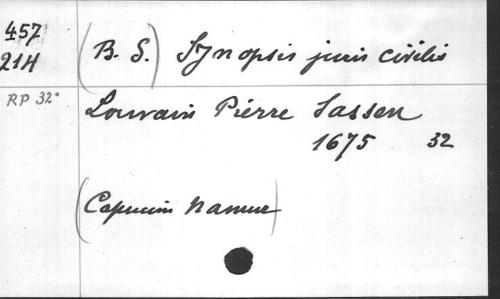 457
214
(B. S.) Synopsis juris civilis
RP 32°
Louvain Pierre Sassen
1675 32
(Capucin Namur)